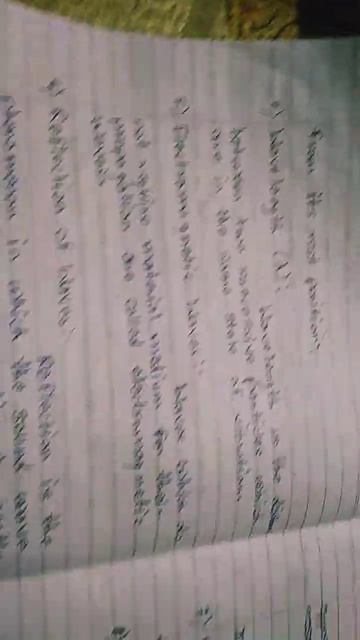 from its rest position.
e) Wavelength (λ): Wavelength is the
between two successive particles which
are in the same state of vibration.
f) Electromagnetic Waves: Waves which do
not require material medium for their
propagation are called electromagnetic
waves.
g) Refraction of Waves: Refraction is the
phenomenon in which the sound wave